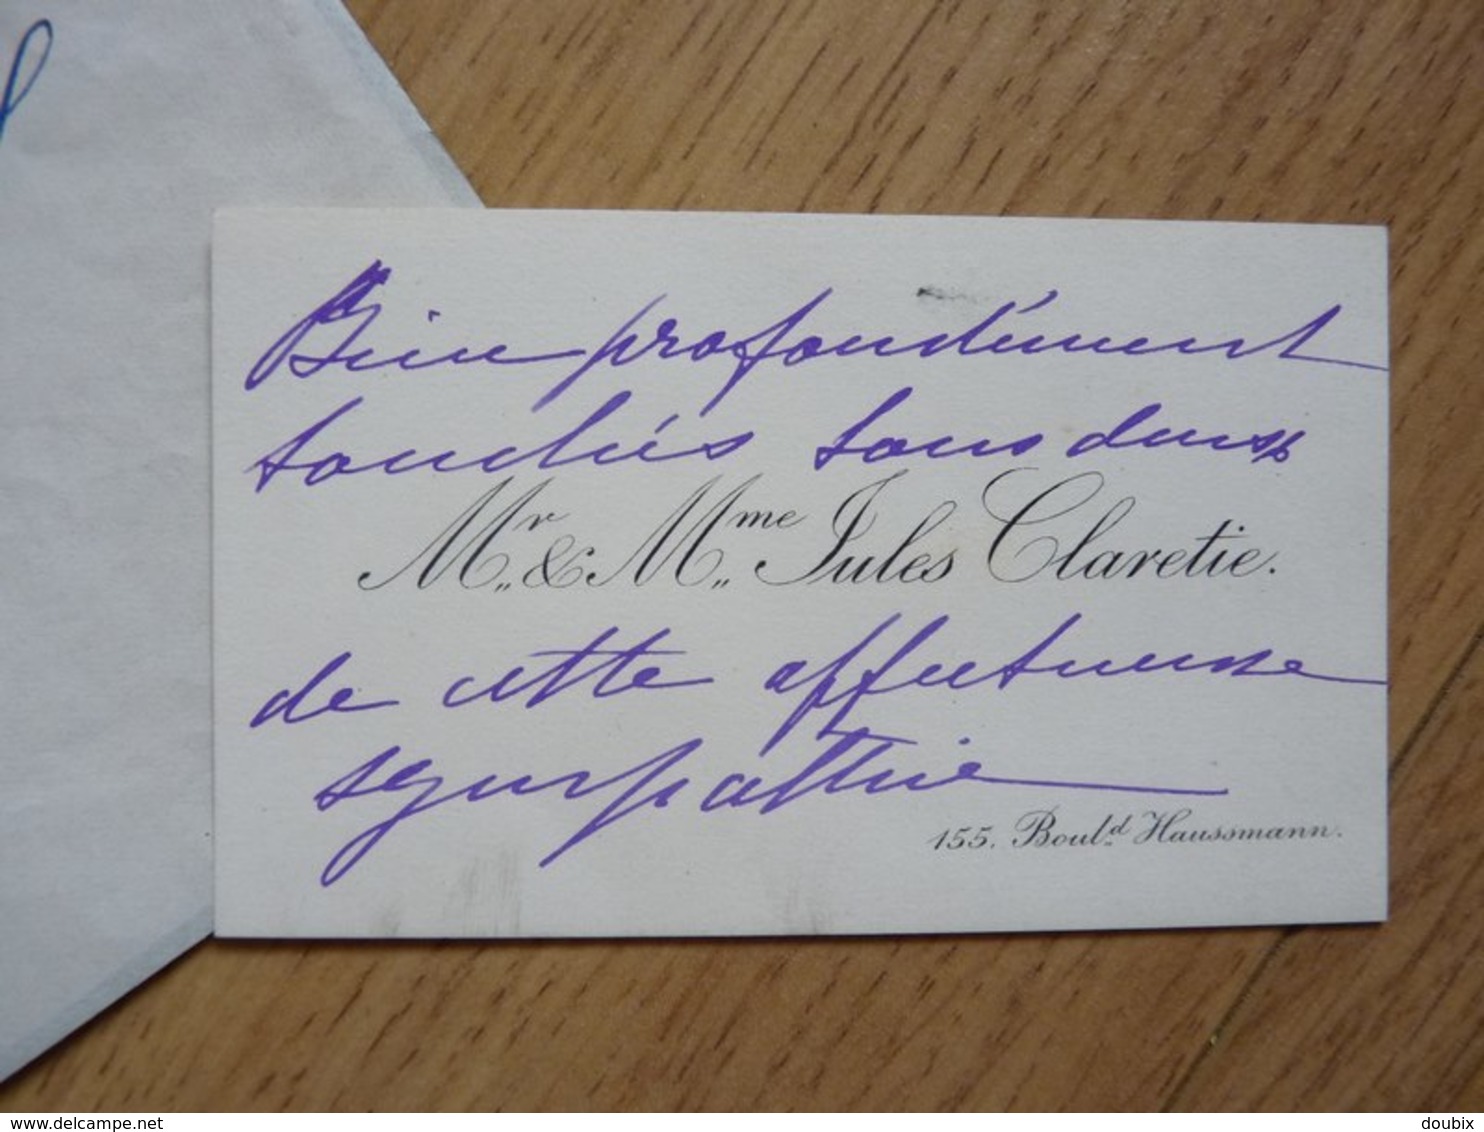 Bien profondément
touchés tous deux
Mr. & Mme. Jules Claretie.
de cette affectueuse
sympathie
155. Bould. Haussmann.
www.delcampe.net
doubix